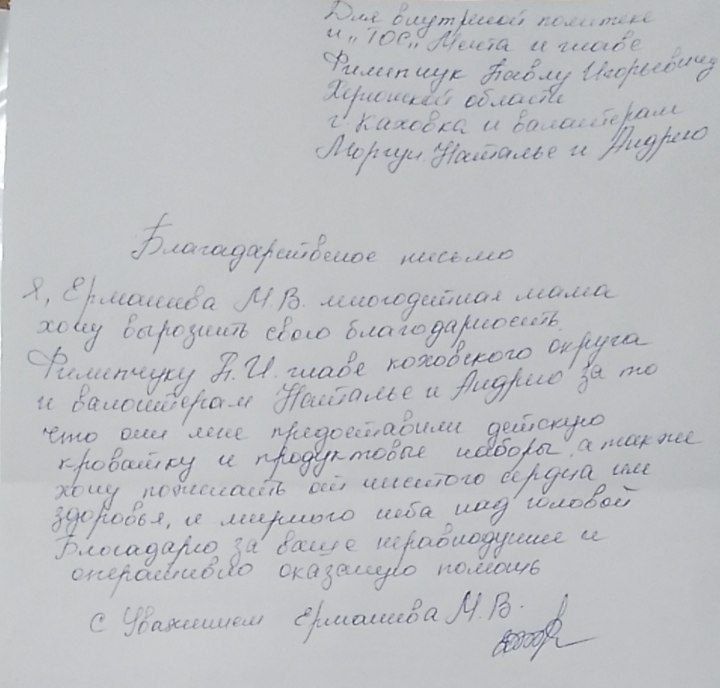 Для внутреной политеке
и „ТОС„ Мечта и главе
Филипчук Павлу Игорьевичу
Херсонкой области
г. Каховка и валантёрам
Моргун Наталье и Андрею
Благадарственое письмо
Я, Ермашева М.В. многодитная мама
хочу вырозить свою благодарность
Филипчуку П.И. главе коховского округа
и валонтёрам Наталье и Андрею за то
что они мне предоставили детскую
кровайтку и продуктовые наборы, а так же
хочу пожелать от чистого сердца им
здоровья, и мирного неба над головой
Блогадарю за ваше неравнодушие и
оперативно оказаную помощь
С Уважением Ермашева М.В.